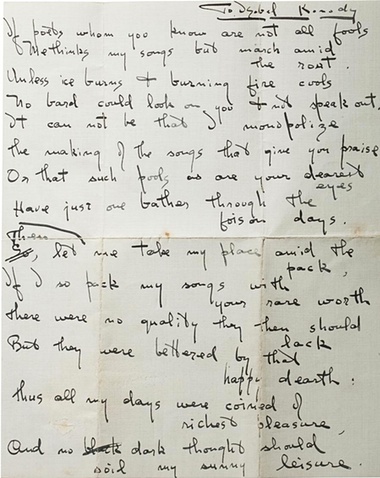 To Isobel Kennedy
If poets whom you know are not all fools
Methinks my songs but march amid
the rout.
Unless ice burns & burning fire cools
No bard could look on you & not speak out,
It can not be that I monopolize
the making of the songs that give you praise
Or that such pools as are your dearest
eyes
Have just one bather through the
foison days.
Then
let me take my place amid the
pack,
If I so pack my songs with
your rare worth
there were no quality they then should
lack
But they were bettered by that
happy dearth:
thus all my days were coined of
richest pleasure,
And no black dark thought should
soil my sunny leisure.